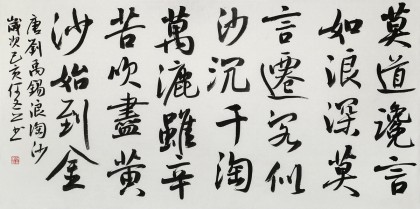 莫道讒言
如浪深莫
言遷客似
沙沉千淘
萬漉雖辛
苦吹盡黃
沙始到金
唐劉禹錫浪淘沙
歲次己亥何